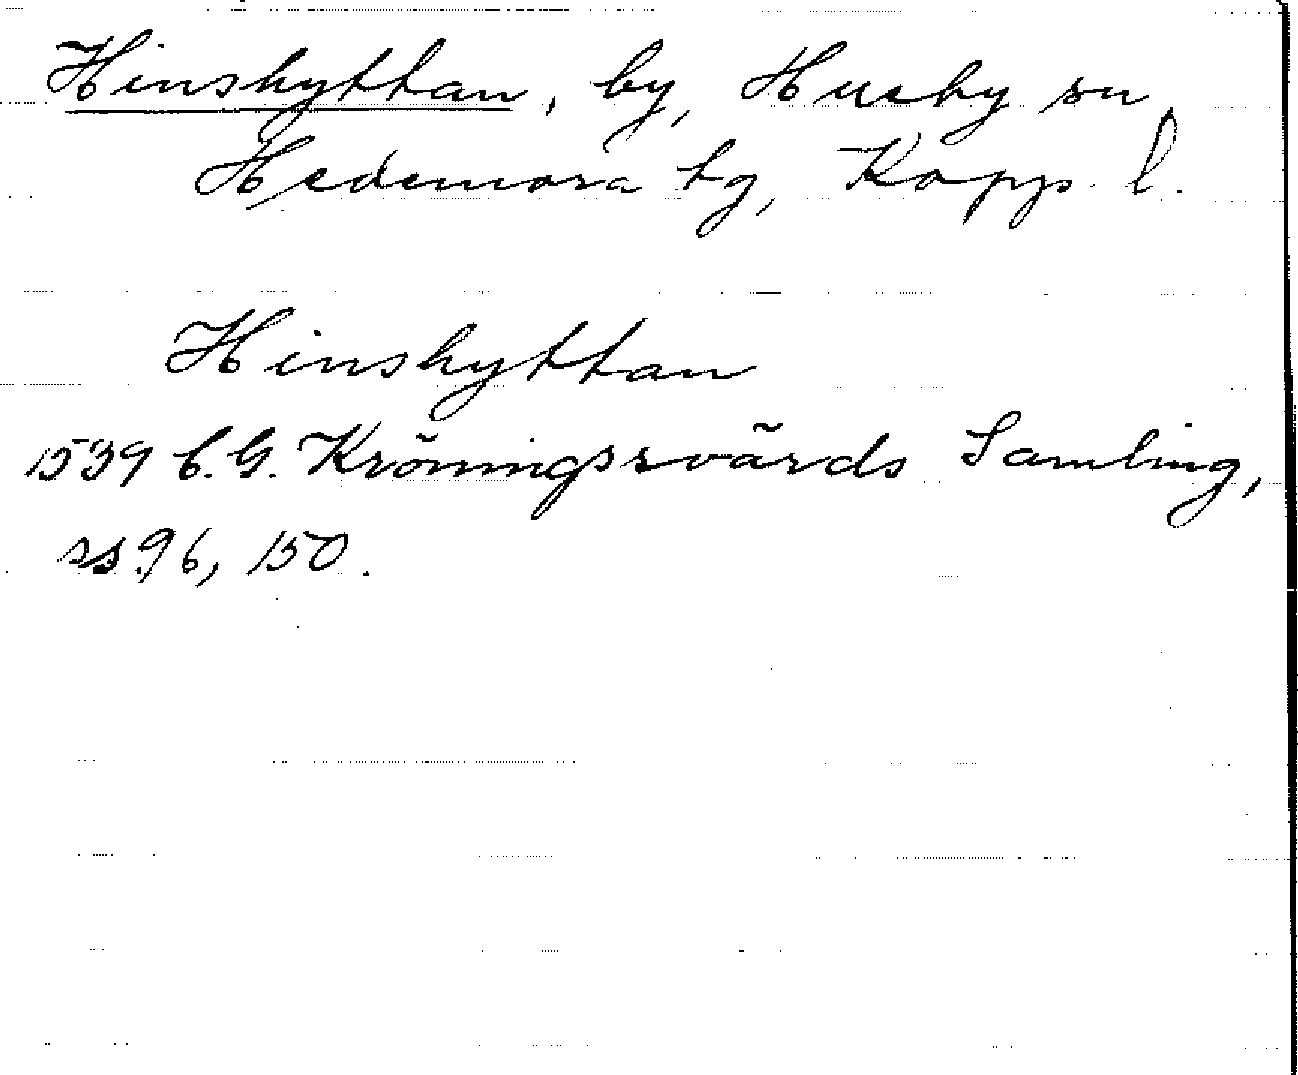 Hinshyttan, by, Husby sn,
Hedemora tg, Kopps. l.
Hinshyttan
1539 C.G. Kröningsvärds Samling,
ss. 96, 150.